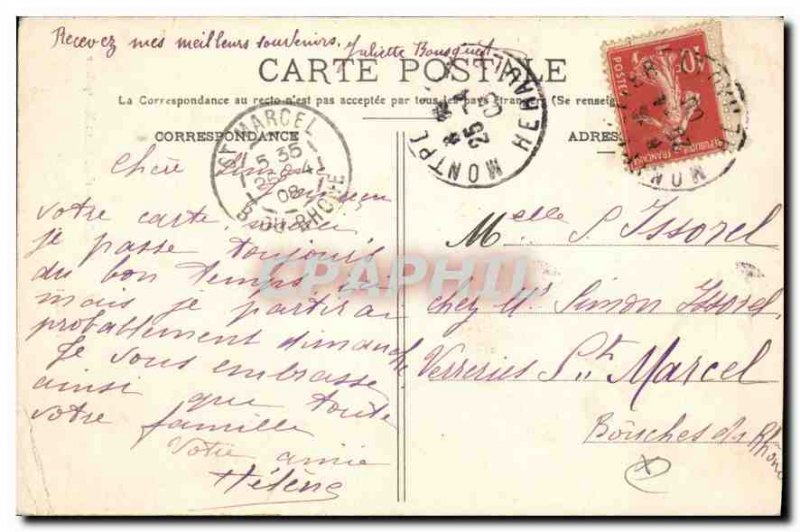 Recevez mes meilleurs souvenirs. Juliette Bousquet
CARTE POSTALE
La Correspondance au recto n'est pas acceptée par tous les pays étrangers (Se renseign
CORRESPONDANCE
ADRES
ST MARCEL
5 35
25 4
08
B. DU RHONE
MONTP
HERAULT
25
POSTES
10
REPUBLIQUE FRANÇAISE
Chère
votre carte,
je passe toujours
du bon temps ici
mais je partirai
probablement dimanche
Je vous embrasse
ainsi que toute
votre famille
Votre amie
Hélène
Melle S. Issorel
chez Mr Simon Issorel
Verreries St Marcel
Bouches du Rhône
CPAPHIL